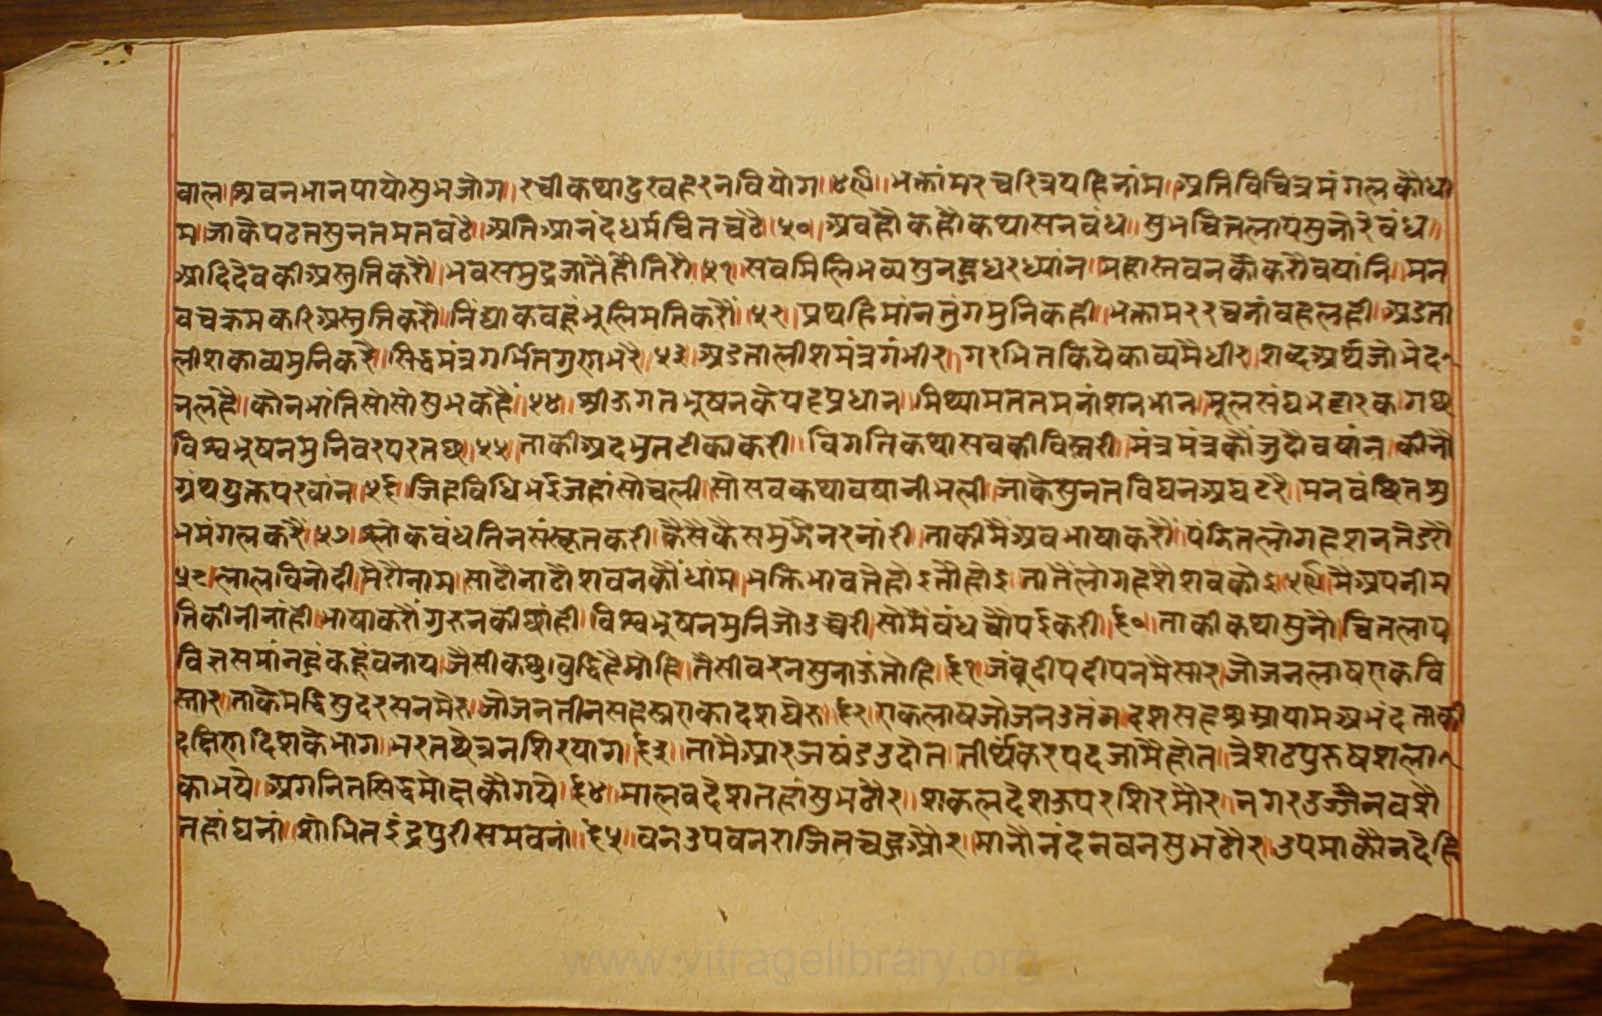 वाल।श्रवनभानपायोसुभजोग॥रचीकथादुखहरनवियोग॥४९॥भक्तांमरचरित्रपहिनांम॥अतिविचित्रमंगलकौधा
म॥जाकैपढतसुनतमतवढै।अतिआनंदधर्मचितचढै॥५०॥अवहौकहौकथासनवंध॥सुभचितलापसुनोरेवंध॥
आदिदेवकीअस्तुतिकरौ॥भवसमुद्रजातैहौतिरौ॥५१॥सवमिलिभव्यसुनहुधरध्यांन॥महास्तवनकौकरौवषांनि॥मन
वचक्रमकरिअस्तुतिकरौ॥निंद्याकवहुंभूलिमतिकरौं॥५२॥प्रथहिमांनतुंगमुनिकही॥भक्तामररचनांवहलही॥अडता
लीशकाव्यमुनिकरै॥सिद्धमंत्रगर्भितगुरुाभरै॥५३॥अडतालीशमंत्रगंभीर॥गरभितकियैकाव्यमैधीर॥शब्दअर्थजोभेद
नलहै॥कौनभांतिसोसोसुभकहै॥५४॥श्रीजगतभूषनकैपट्टप्रधान॥मिथ्यामततमनांशनभान॥मूलसंघभट्टारकगछ
विश्वभूषनमुनिवरपरतछ॥५५॥ताकीअदभुतटीकाकरी॥विगतिकथासवकीविस्तरी॥मंत्रमंत्रकौंजुदौवषांन॥कीनौ
ग्रंथयुक्तपरवांन॥५६॥जिहविधिभईजहांसोचली॥सोसवकथावषानीभली॥जाकेसुनतविघनअघटरै॥मनवंछितसु
भमंगलकरै॥५७॥श्लोकवंधतिनसंस्कृतकरी॥कैसैकैसमुजैनरनांरी॥ताकीमैअवभाषाकरौं॥पंडितलोगहशनतैडरौ
५८॥लालविनोदी॥मेरौनाम॥साटौनाटौशवनकौंधांम॥भक्तिभावतैहोइतौहोइ॥तातैलोगहशैशवकोइ॥५९॥मैअपनीम
तिकीनीनांही॥भाषाकरौंगुरुनकीछांही॥विश्वभूषनमुनिजोउच्चरी॥सोमैंवंधचौपईकरी॥६०॥ताकीकथासुनौ॥चितलाय
वित्तसमांनहूंकहूंवनाय॥जैसीकछु।वुद्धिहैमोहि॥तैसीवरनसुनाऊंतोहि॥६१॥जंबूदीपदीपनमैसार॥जोजनलाषएकवि
स्तार॥ताकैमद्धिसुदरसनमेर॥जौजनतीनसहस्रएकादशघेरु॥६२॥एकलाषजोजनउतंग॥दशसहश्रआयामअभंद॥ताकी
दक्षिणदिशकेभाग॥भरतषेत्रनशिरपाग॥६३॥तामैआरजषंडउदोत॥तीर्थंकरपदजामैहोत॥त्रेशठपुरुषशला
काभयै॥अगनितसिद्धमोक्षकौगयै॥६४॥मालवदेशतहांसुभठौर॥शकलदेशऊपरशिरमौर॥नगरउज्जैनवशै
तहांघनां॥शोभितइंद्रपुरीसमवनां॥६५॥वनउपवनराजितचहुओर॥मानौनंदनवनसुभठौर॥उपमाकौनदैहि